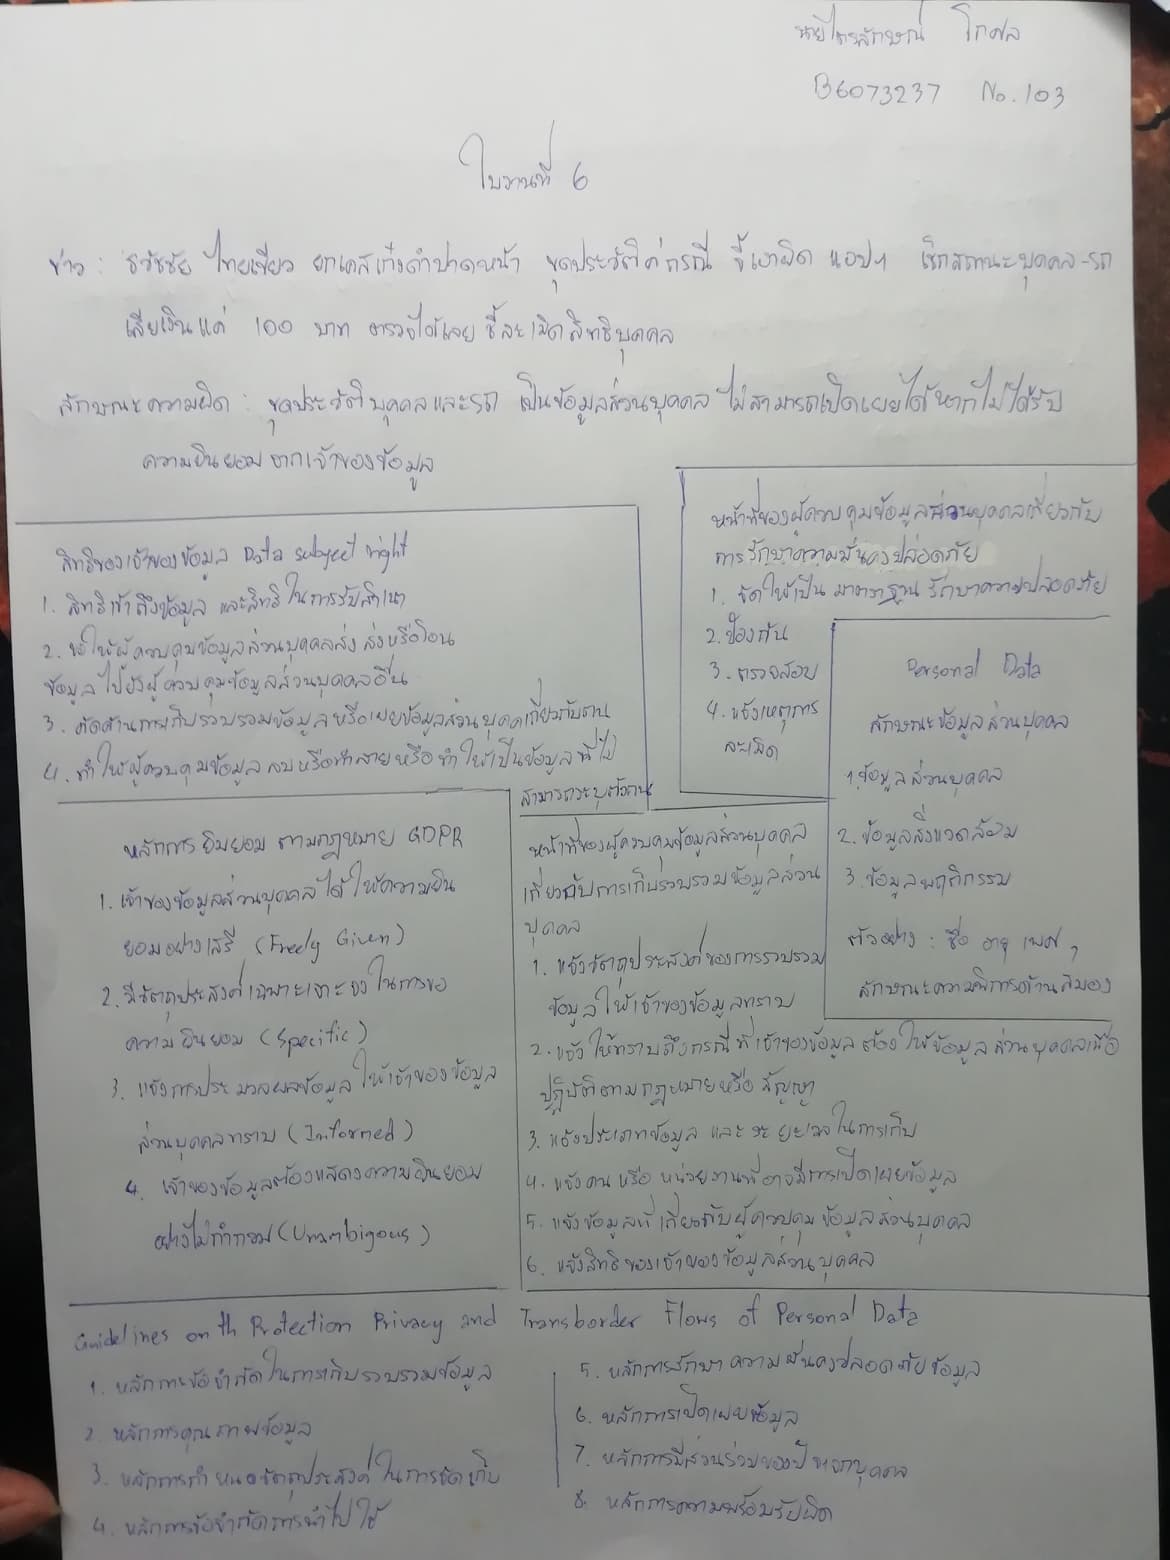 นายไตรลักษณ์ โกศล
B6073237 No.103
ใบงานที่ 6
ข่าว : ธวัชชัย ไทยเขียว ยกเคสเก๋งดำปาดหน้า ขุดประวัติคู่กรณี ชี้เอาผิด แอปฯ เช็กสถานะบุคคล-รถ
เสียเงินแค่ 100 บาท ตรวจได้เลย ชี้ละเมิดสิทธิบุคคล
ลักษณะความผิด : ขุดประวัติบุคคลและรถ เป็นข้อมูลส่วนบุคคล ไม่สามารถเปิดเผยได้หากไม่ได้รับ
ความยินยอมจากเจ้าของข้อมูล
สิทธิของเจ้าของข้อมูล Data subject right
1. สิทธิเข้าถึงข้อมูล และสิทธิในการรับสำเนา
2. ขอให้ผู้ควบคุมข้อมูลส่วนบุคคลส่ง ส่งหรือโอน
ข้อมูลไปยังผู้ควบคุมข้อมูลส่วนบุคคลอื่น
3. คัดค้านการเก็บรวบรวมข้อมูลหรือเผยข้อมูลส่วนบุคคลเกี่ยวกับตน
4. ทำให้ผู้ควบคุมข้อมูล ลบหรือทำลายหรือ ทำให้เป็นข้อมูลที่ไม่
สามารถระบุตัวตน
หน้าที่ของผู้ควบคุมข้อมูลส่วนบุคคลเกี่ยวกับ
การรักษาความมั่นคงปลอดภัย
1. จัดให้เป็น มาตราฐาน รักษาความปลอดภัย
2. ป้องกัน
3. ตรวจสอบ
4. แจ้งเหตุการ
ละเมิด
Personal Data
ลักษณะข้อมูลส่วนบุคคล
1. ข้อมูลส่วนบุคคล
2. ข้อมูลสิ่งแวดล้อม
3. ข้อมูลพฤติกรรม
ตัวอย่าง : ชื่อ อายุ เพศ,
ลักษณะความพิการด้านสมอง
หลักการยินยอม ตามกฎหมาย GDPR
1. เจ้าของข้อมูลส่วนบุคคลได้ให้ความยิน
ยอมอย่างเสรี (Freely Given)
2. มีวัตถุประสงค์เฉพาะเจาะจงในการขอ
ความยินยอม (Specific)
3. แจ้งการประมวลผลข้อมูลให้เจ้าของข้อมูล
ส่วนบุคคลทราบ (Informed)
4. เจ้าของข้อมูลต้องแสดงความยินยอม
อย่างไม่กำกวม (Unambigous)
หน้าที่ของผู้ควบคุมข้อมูลส่วนบุคคล
เกี่ยวกับการเก็บรวบรวมข้อมูลส่วน
บุคคล
1. แจ้งวัตถุประสงค์ของการรวบรวม
ข้อมูลให้เจ้าของข้อมูลทราบ
2. แจ้งให้ทราบถึงกรณีที่เจ้าของข้อมูลต้องให้ข้อมูลส่วนบุคคลเพื่อ
ปฏิบัติตามกฎหมายหรือ สัญญา
3. แจ้งประเภทข้อมูล และระยะเวลาในการเก็บ
4. แจ้งคน หรือ หน่วยงานที่อาจมีการเปิดเผยข้อมูล
5. แจ้งข้อมูลที่เกี่ยวกับผู้ควบคุมข้อมูลส่วนบุคคล
6. แจ้งสิทธิของเจ้าของข้อมูลส่วนบุคคล
Guidelines on th Protection Privacy and Transborder Flows of Personal Data
1. หลักการข้อจำกัดในการเก็บรวบรวมข้อมูล
2. หลักการคุณภาพข้อมูล
3. หลักการกำหนดวัตถุประสงค์ในการจัดเก็บ
4. หลักการข้อจำกัดการนำไปใช้
5. หลักการรักษาความมั่นคงปลอดภัยข้อมูล
6. หลักการเปิดเผยข้อมูล
7. หลักการมีส่วนร่วมของปัจเจกบุคคล
8. หลักการความพร้อมรับผิด